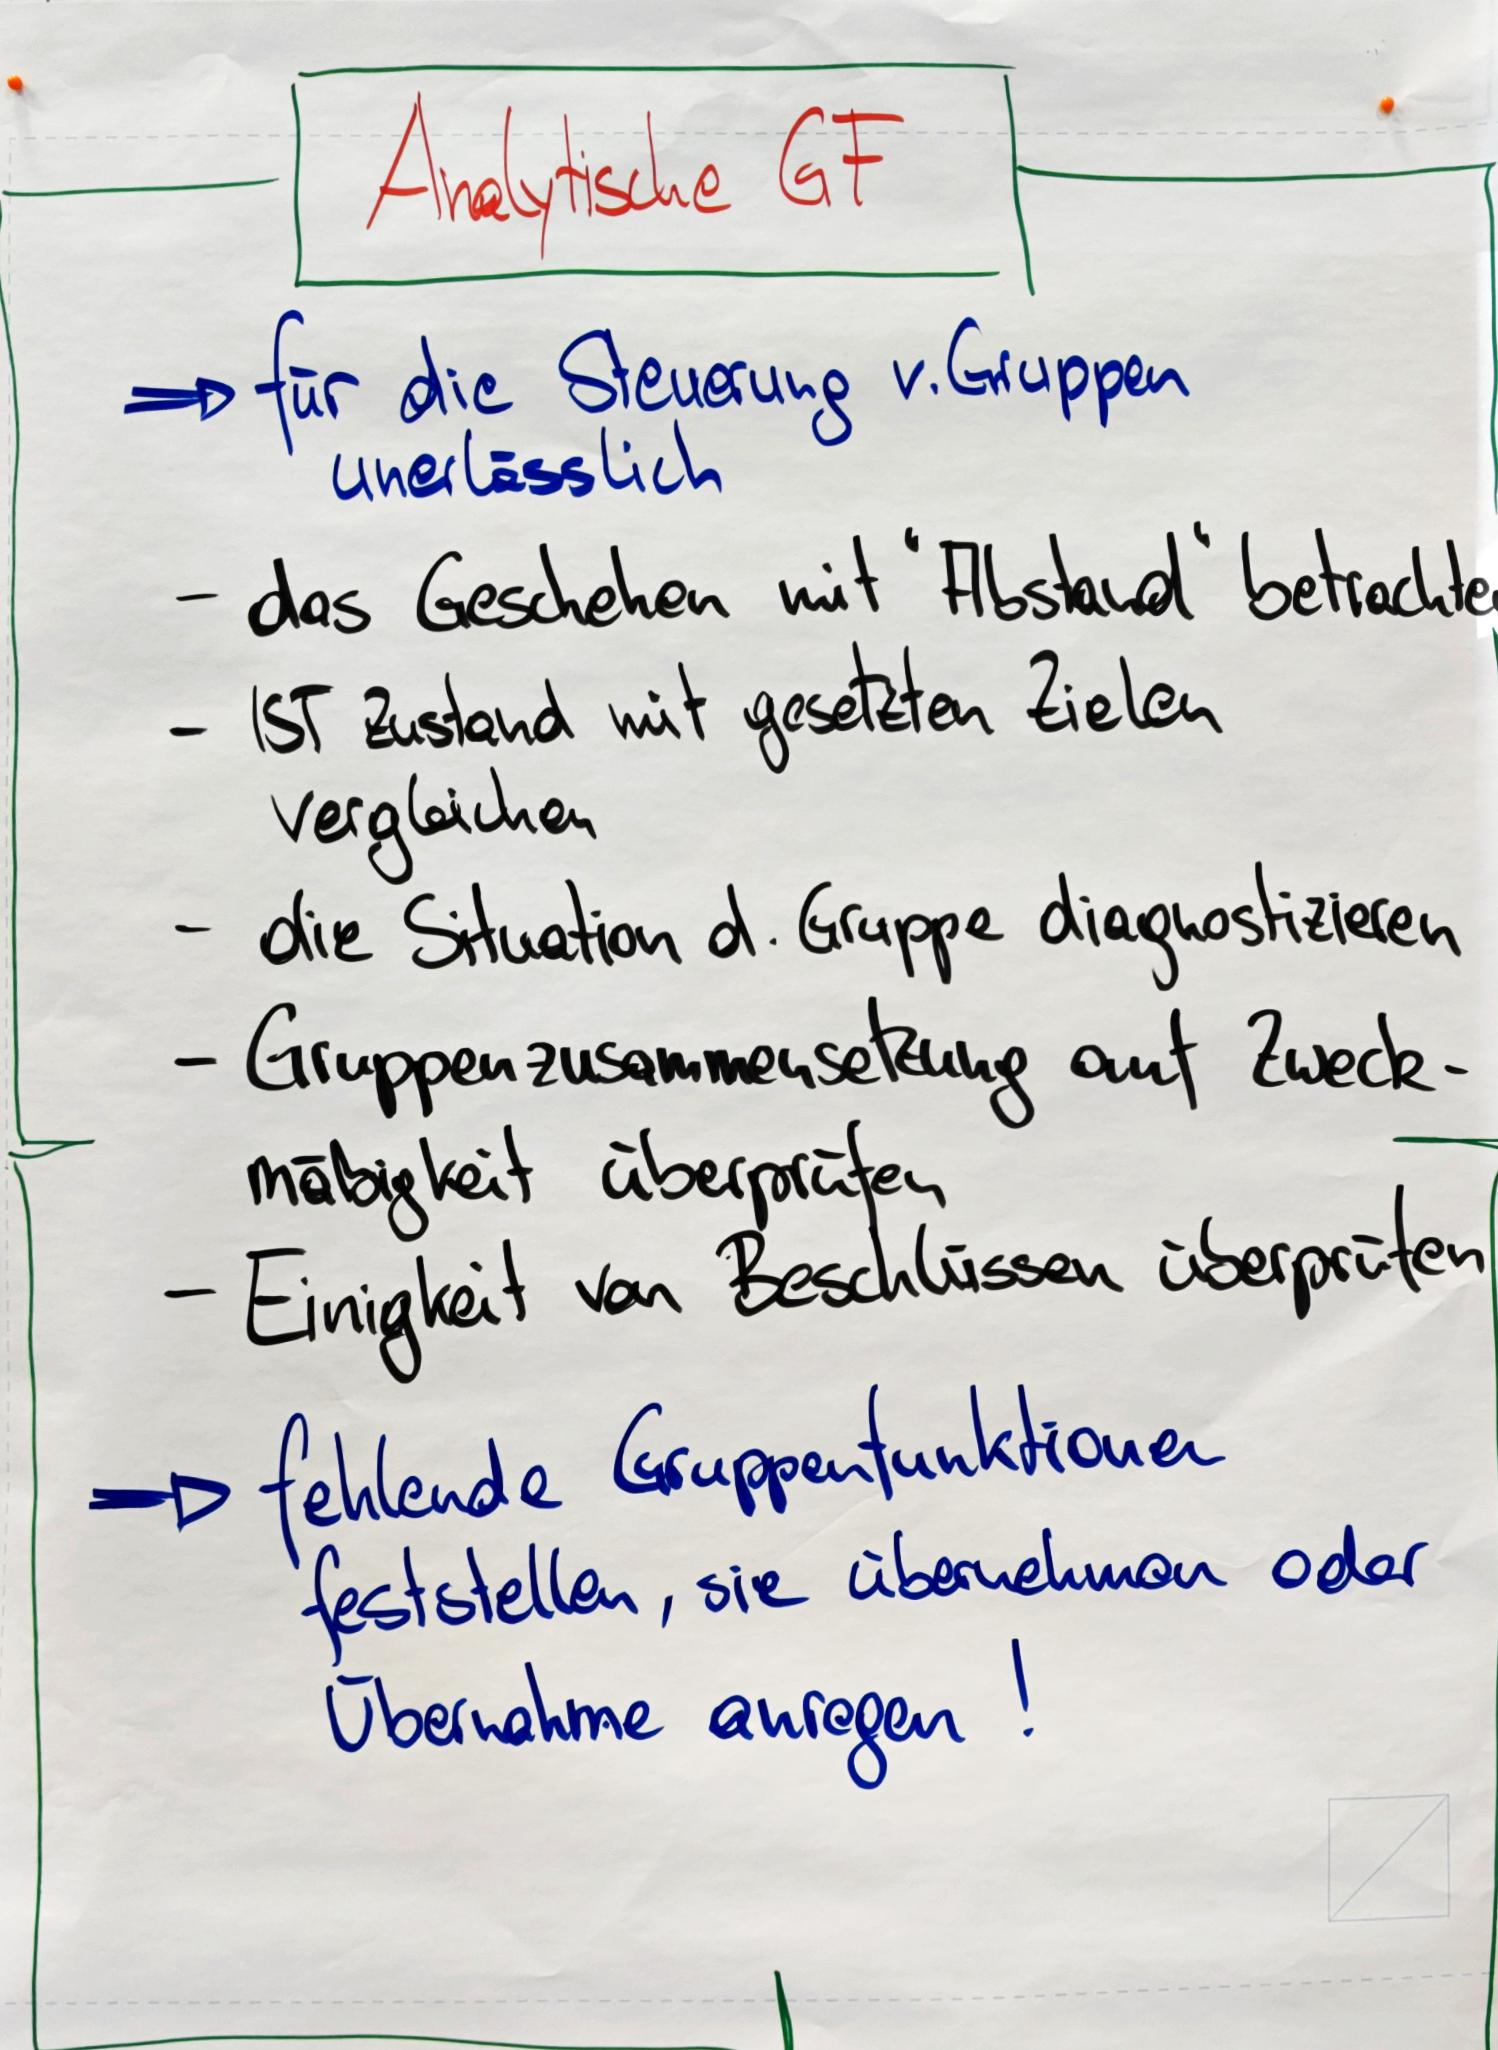 Analytische GF
⇒ für die Steuerung v. Gruppen
unerlässlich
- das Geschehen mit "Abstand" betrachten
- IST Zustand mit gesetzten Zielen
vergleichen
- die Situation d. Gruppe diagnostizieren
- Gruppenzusammensetzung auf Zweck-
mäßigkeit überprüfen
- Einigkeit von Beschlüssen überprüfen
⇒ fehlende Gruppenfunktionen
feststellen, sie übernehmen oder
Übernahme anregen !